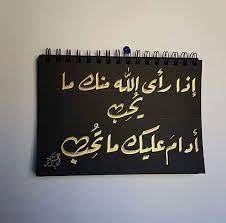 إذا رأى الله منك ما
يُحِب
أدامَ عليك ما تُحِب